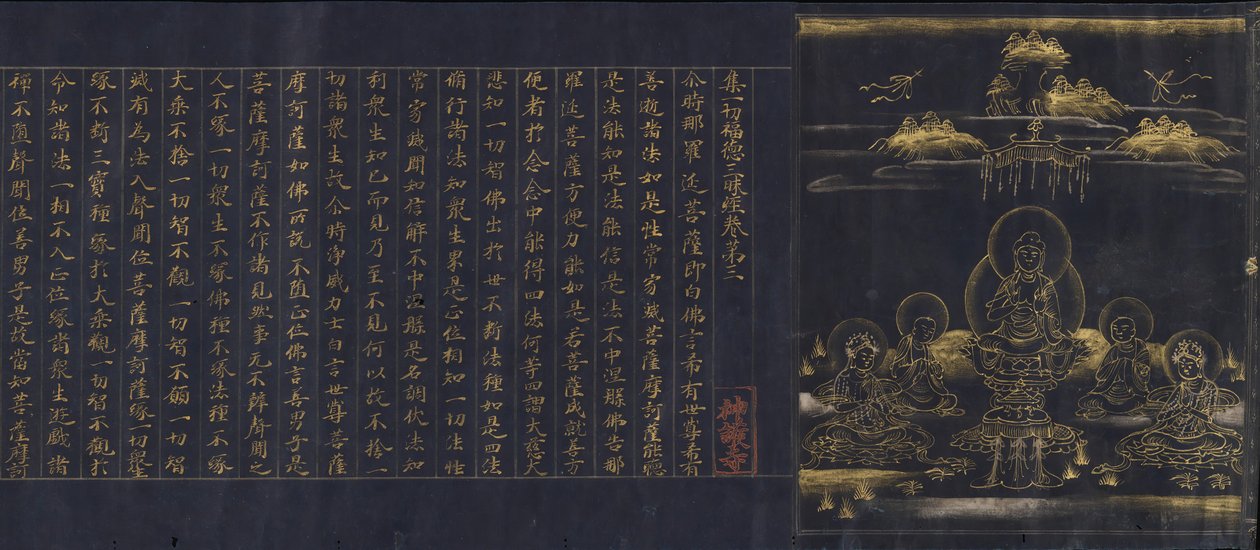 集一切福德三昧経卷第三
尒時那羅延菩薩即白佛言希有世尊希有
善逝諸法如是性常寂滅菩薩摩訶薩能聽
是法能知是法能信是法不中涅槃佛告那
羅延菩薩方便力能如是若菩薩成就善方
便者於念念中能得四法何等四謂大慈大
悲知一切智佛出於世不斷法種如是四法
脩行諸法知衆生界是正位相知一切法性
常寂滅聞知信解不中涅槃是名調伏法知
利衆生知已而見乃至不見何以故不捨一
切諸衆生故尒時淨威力士白言世尊菩薩
摩訶薩如佛所說不墮正位佛言善男子是
菩薩摩訶薩不作諸見然事无不辦聲聞之
人不緣一切衆生不緣佛種不緣法種不緣
大乘不捨一切智不觀一切智不願一切智
滅有為法入聲聞位菩薩摩訶薩緣一切衆生
緣不斷三寶種緣於大乘觀一切智不觀於
命知諸法一相不入正位緣諸衆生遊戲諸
禪不墮聲聞位善男子是故當知菩薩摩訶
神護寺